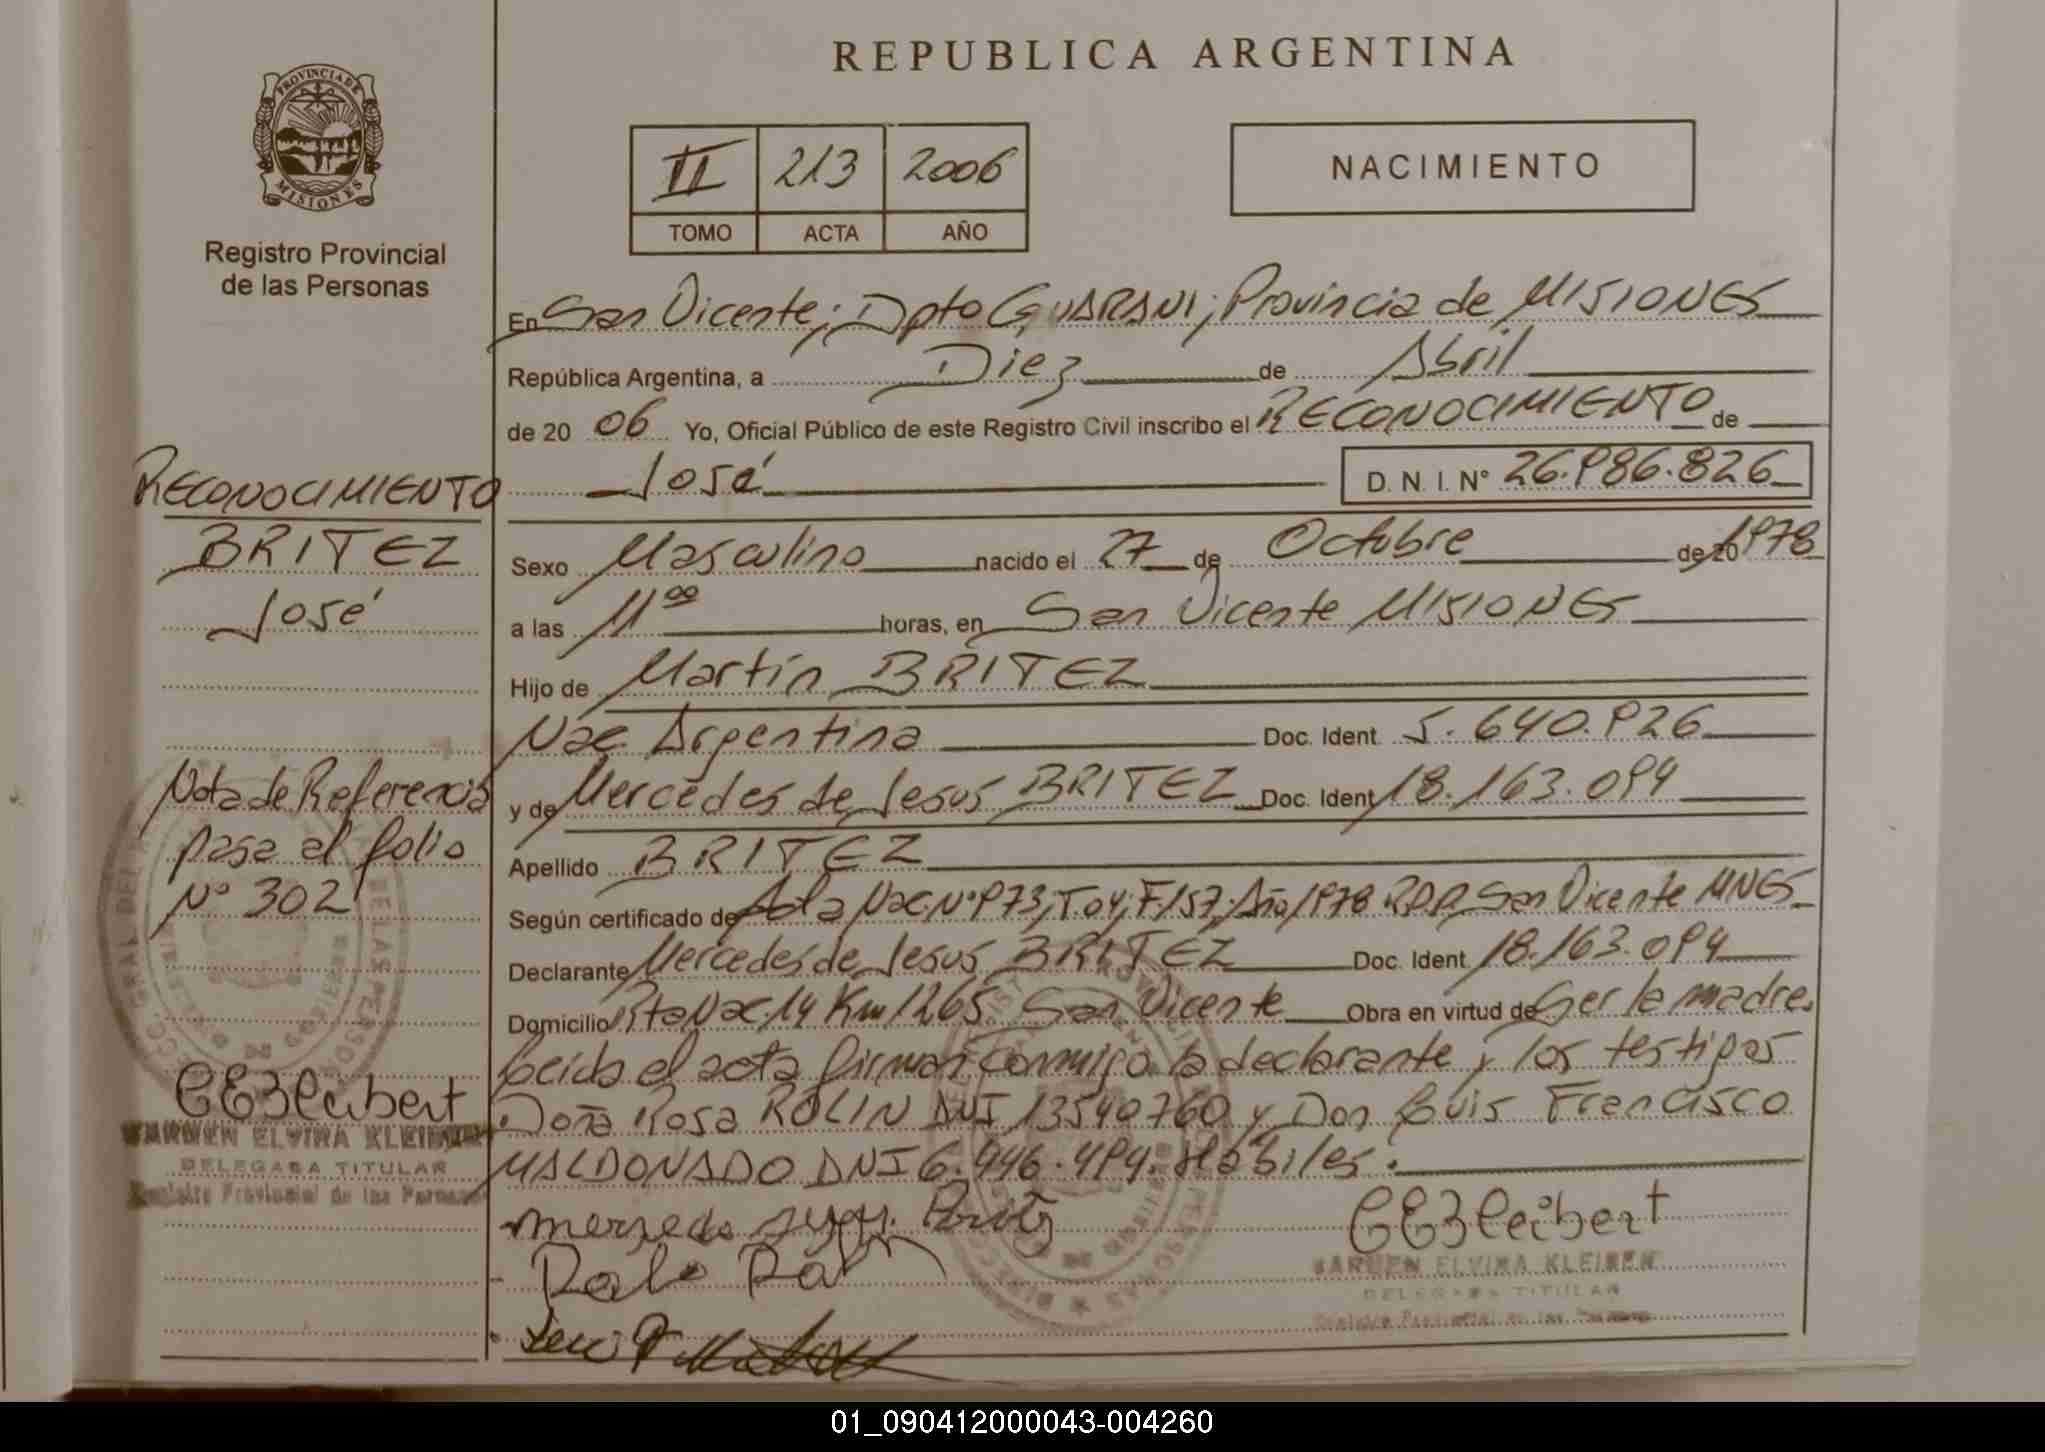 REPUBLICA ARGENTINA
PROVINCIA DE
MISIONES
Registro Provincial
de las Personas
II 213 2006
TOMO ACTA AÑO
NACIMIENTO
En San Vicente; Dpto GUARANI; Provincia de MISIONES
República Argentina, a Diez de Abril
de 20 06 Yo, Oficial Público de este Registro Civil inscribo el RECONOCIMIENTO de
José D. N. I. N° 26.986.826
Sexo Masculino nacido el 27 de Octubre de 20 1978
a las 11 00 horas, en San Vicente MISIONES
Hijo de Martín BRITEZ
Nac. Argentina Doc. Ident. 5.640.926
y de Mercedes de Jesus BRITEZ Doc. Ident 18.163.094
Apellido BRITEZ
Según certificado de Acta Nac. N° 973; T.04; F/57; Año 1978 R.P.P. San Vicente MNES
Declarante Mercedes de Jesus BRITEZ Doc. Ident. 18.163.094
Domicilio Rta Nac. 14 Km 1265 San Vicente Obra en virtud de Ser la madre.
Leida el acta firman conmigo la declarante y los testigos
Doña Rosa ROLIN DNI 13540760 y Don Luis Francisco
MALDONADO DNI 6.446.494. Hábiles.
RECONOCIMIENTO
BRITEZ
José
Nota de Referencia
pasa al folio
N° 302
CARMEN ELVIRA
DELEGADA TITULAR
Registro Provincial de las Personas
CARMEN ELVIRA
DELEGADA TITULAR
Registro Provincial de las Personas
01_090412000043-004260